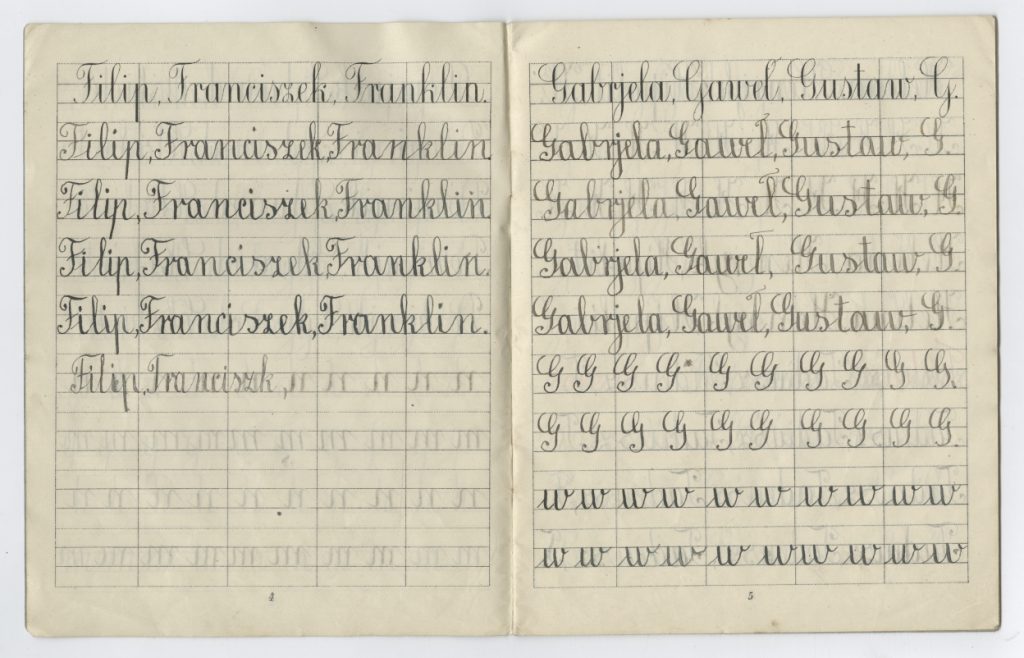 Filip, Franciszek, Franklin.
Filip, Franciszek, Franklin
Filip, Franciszek, Franklin
Filip, Franciszek, Franklin.
Filip, Franciszek, Franklin.
Filip, Franciszk, n n n n n
4
Gabrjela, Gaweł, Gustaw, G.
Gabrjela, Gaweł, Gustaw, G.
Gabrjela, Gaweł, Gustaw, G.
Gabrjela, Gaweł, Gustaw, G.
Gabrjela, Gaweł, Gustaw, G.
G G G G G G G G G G.
G G G G G G G G G G.
w w w w w w w w w w
w w w w w w w w w w
5